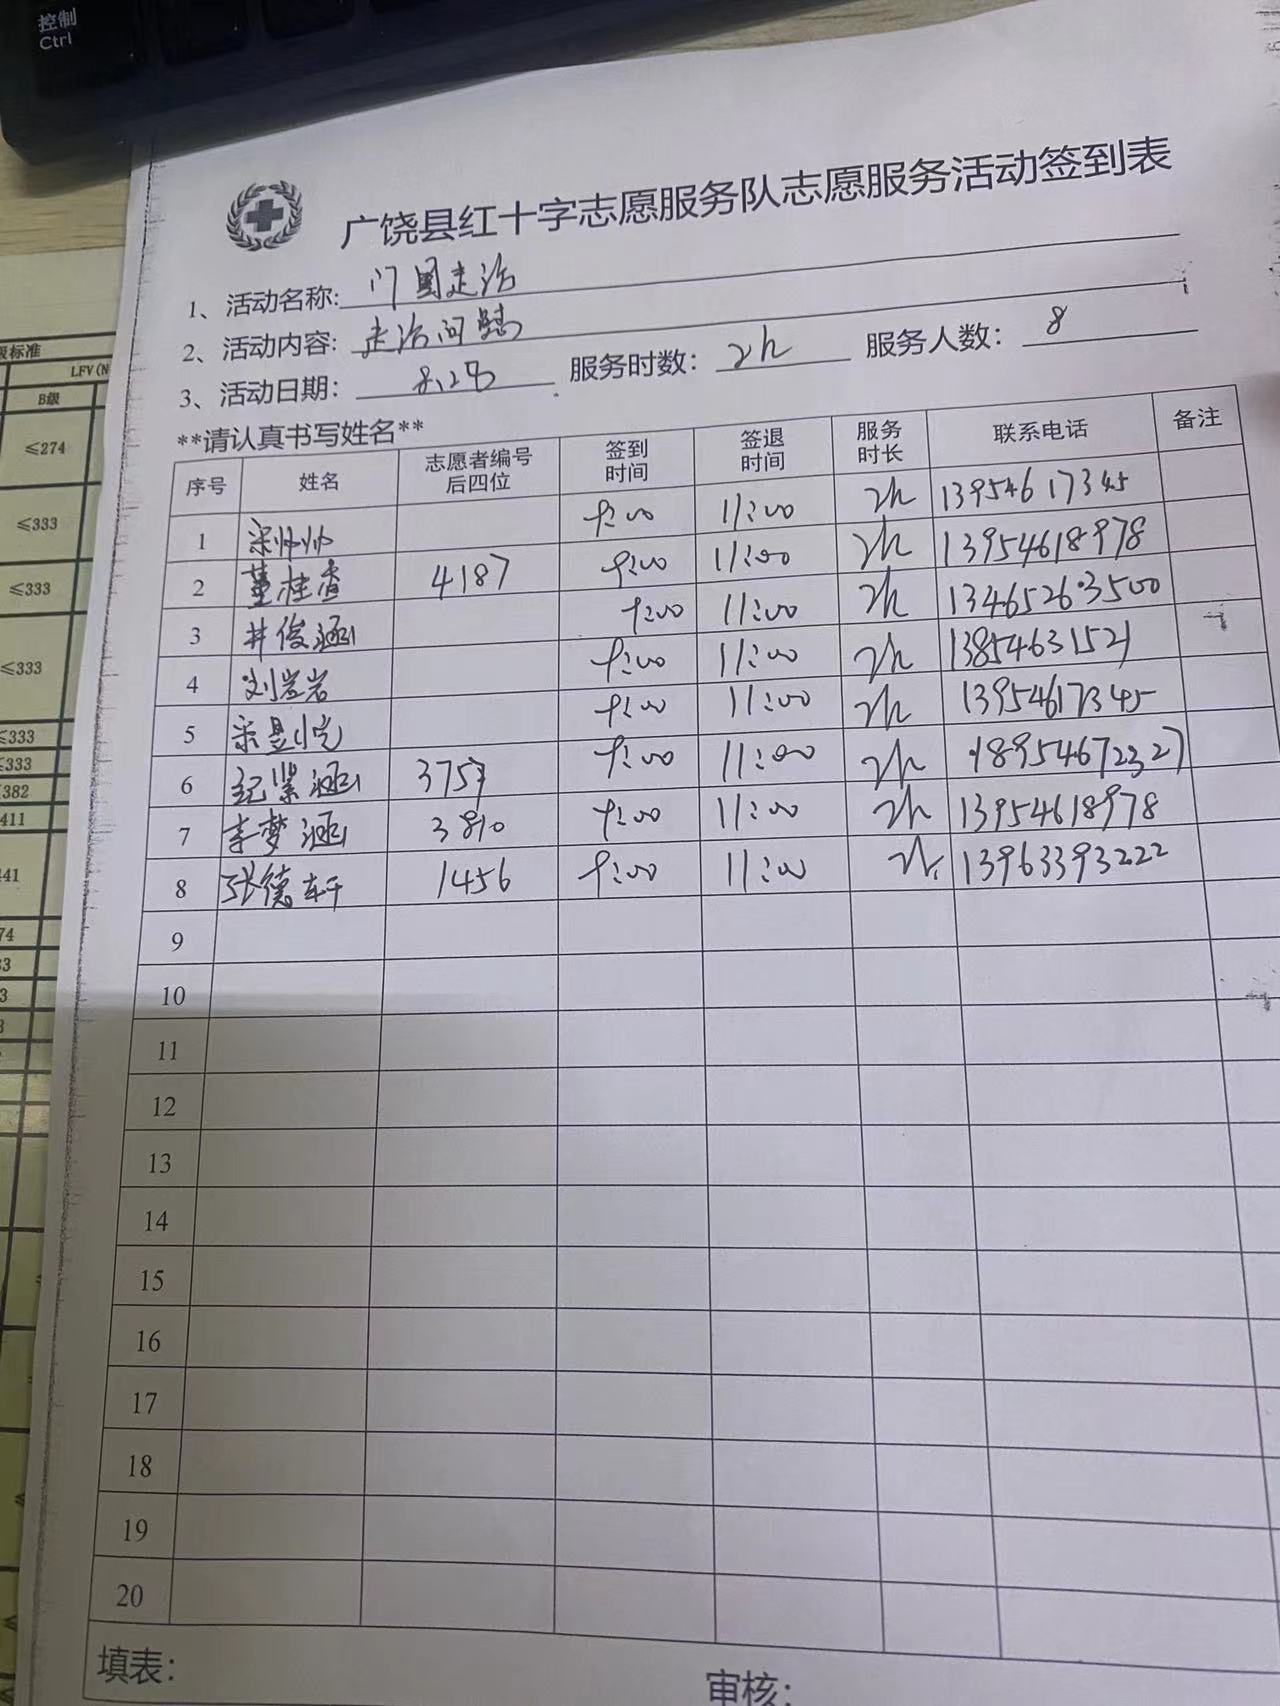 控制
Ctrl
广饶县红十字志愿服务队志愿服务活动签到表
1、活动名称:
2、活动内容: 走访问慰
3、活动日期: 服务时数: 2h 服务人数: 8
**请认真书写姓名**
序号 姓名 志愿者编号后四位 签到时间 签退时间 服务时长 联系电话 备注
1 9:00 11:00 2h 13954617345
2 董桂香 4187 9:00 11:00 2h 13954618978
3 井俊涵 9:00 11:00 2h 13465263500
4 刘岩岩 9:00 11:00 2h 13854631521
5 9:00 11:00 2h 13954617345
6 纪紫涵 3757 9:00 11:00 2h 18954672327
7 李梦涵 3810 9:00 11:00 2h 13954618978
8 张德轩 1456 9:00 11:00 2h 13963393222
9
10
11
12
13
14
15
16
17
18
19
20
填表: 审核:
级标准
LFV(N
B级
≤274
≤333
≤333
≤333
≤333
≤333
382
411